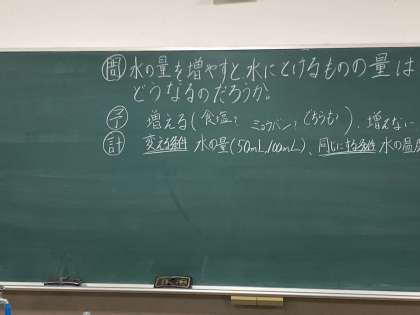 問 水の量を増やすと水にとけるものの量は
どうなるのだろうか。
予 増える(食塩? ミョウバン? どちらも)、増えない
計 変える条件 水の量(50mL,100mL)、同じにする条件 水の温度